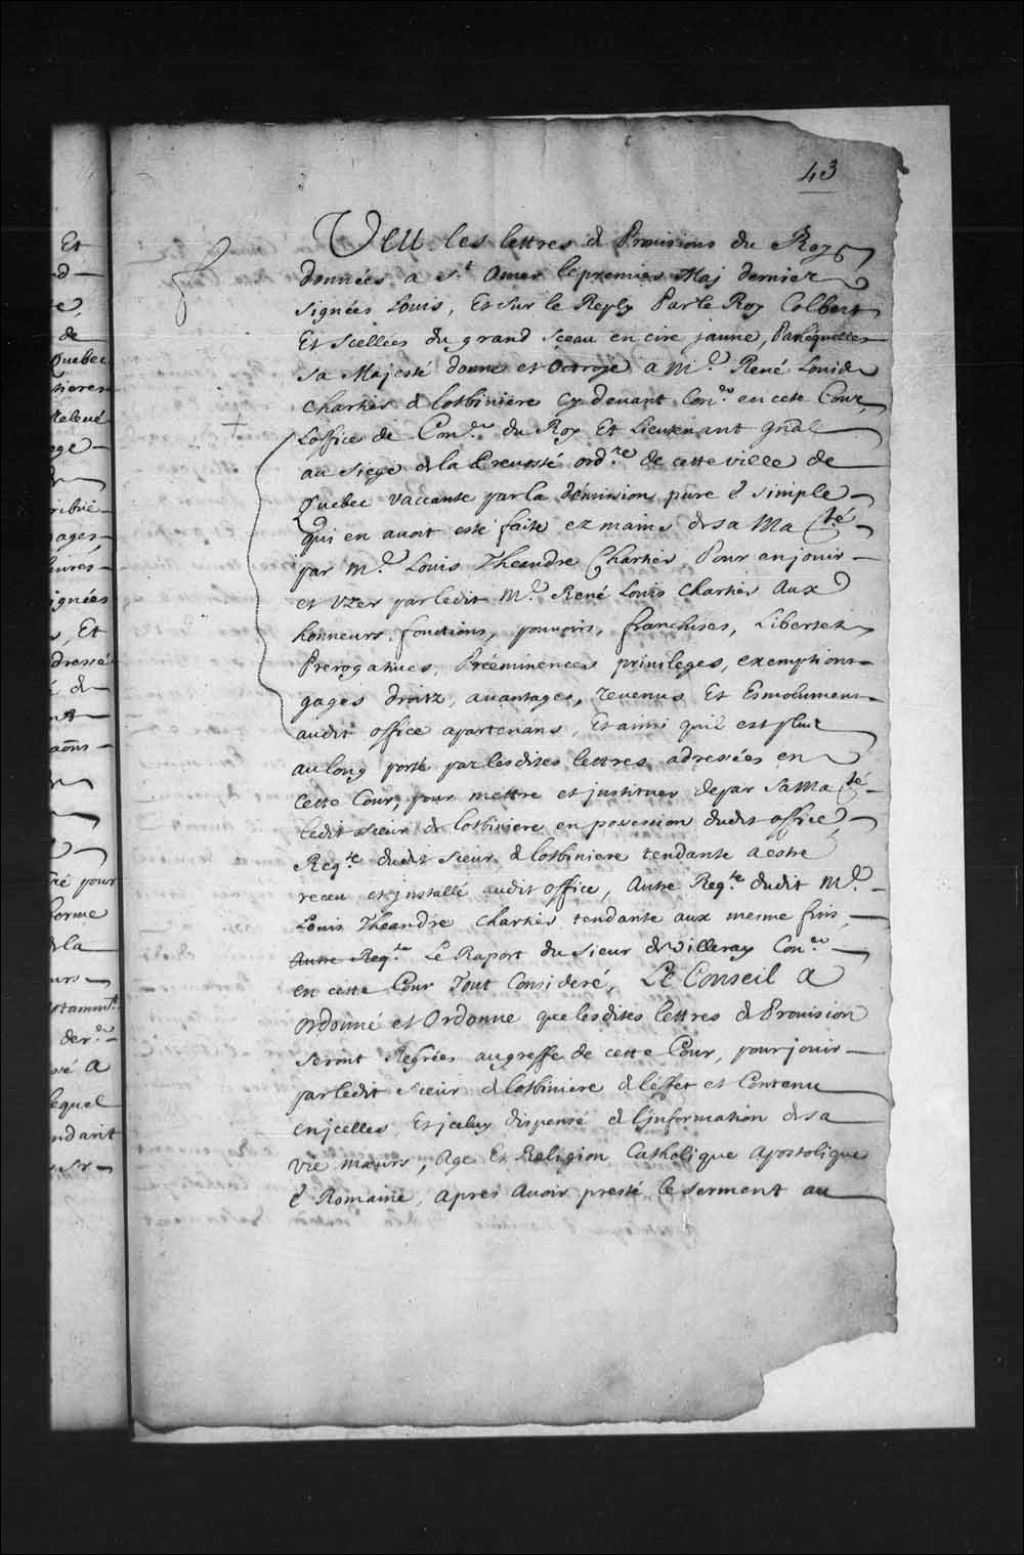 43
VEU les lettres de Prouisions du Roy
données a St Omer le premier May dernier
signées Louis, Et sur le Reply Par le Roy Colbert
Et Scellées du grand Sceau en cire jaune, Parlequelles
sa Majesté donne et Octroye a Me René Louis
Chartier de Lotbiniere cy deuant Conr en cete Cour,
Loffice de Coner du Roy Et Lieutenant gnal
au siege de la Preuosté ordre de cette ville de
Quebec vaccante par la démission pure & simple
qui en auoit esté faite ez mains de sa Mate
par Me Louis Theandre Chartier, Pour en jouir
et Vzer par ledit Me René Louis Chartier Aux
honneurs, fonctions, pouuoirs, franchises, Libertez
Prerogatiues, Prééminences priuileges, exemptions
gages droitz, auantages, reuenus Et Esmolumens
audit office apartenans, Et ainsi quil est plus
au long porté par lesdites lettres, adressées en
Cette Cour, pour mettre et jnstituer de par Sa Maté
ledit sieur de Lotbiniere en possession dudit office,
Reqte dudit sieur de Lotbiniere tendante a estre
receu et jnstallé audit office, Autre Reqte dudit Me
Louis Theandre Chartier tendante aux mesme fins,
Autre Reqte Le Raport du Sieur de Villeray Coner
en cette Cour Tout Consideré, LE Conseil A
Ordonné et Ordonne que lesdites lettres de Prouision
seront Regrées au greffe de cette Cour, pour jouir
par ledit sieur de Lotbiniere de leffet et Contenu
en jcelles, Et jceluy dispensé de linformation de sa
vie mœurs, Age Et Religion Catholique Apostolique
& Romaine, apres Auoir presté le serment au
Et
de
Quebec
Releué
ribué
gages
signées
Et
dressé
pour
forme
de la
A
lequel